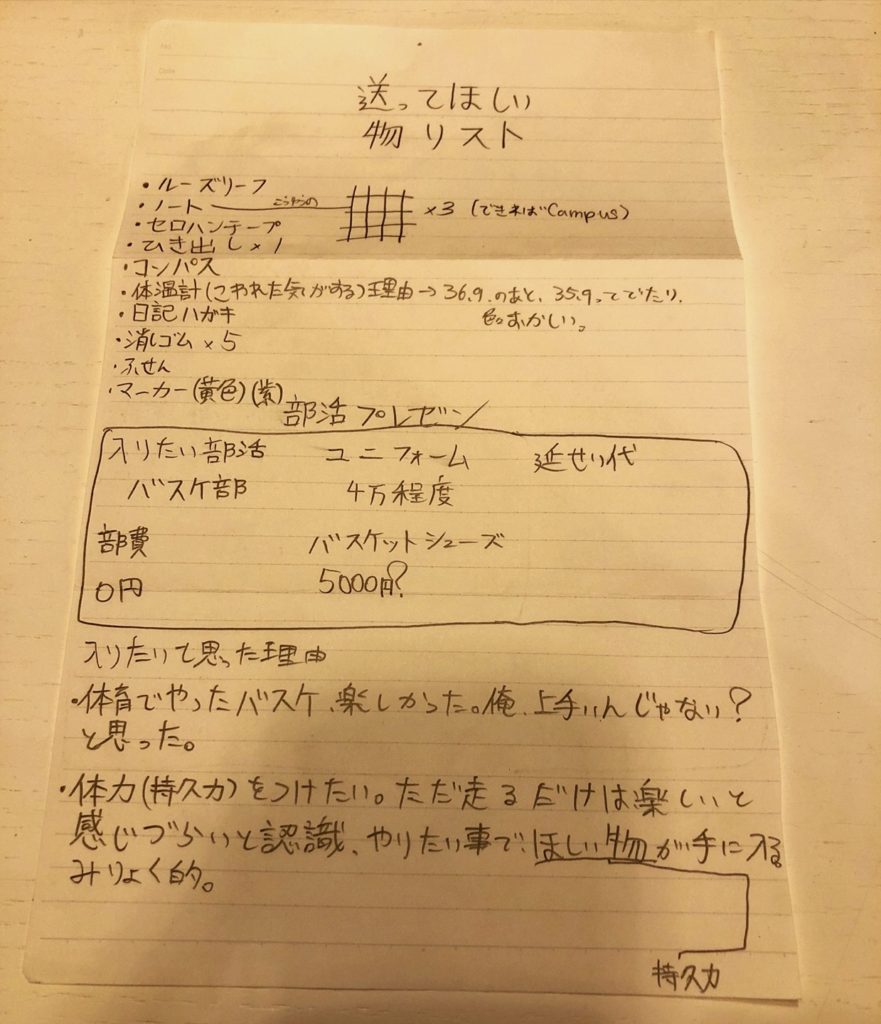 送ってほしい
物リスト
・ルーズリーフ
・ノート こうゆうの ×3 (できればCampus)
・セロハンテープ
・ひき出し×1
・コンパス
・体温計(こわれた気がする)理由→36.9.のあと、35.9ってでたり、
色々おかしい。
・日記ハガキ
・消しゴム×5
・ふせん
・マーカー(黄色)(紫)
部活プレゼン
入りたい部活 ユニフォーム 遠せい代
バスケ部 4万程度
部費 バスケットシューズ
0円 5000円?
入りたいて思った理由
・体育でやったバスケ、楽しかった。俺、上手いんじゃない?
と思った。
・体力(持久力)をつけたい。ただ走るだけは楽しいと
感じづらいと認識、やりたい事で、ほしい物が手に入る。
みりょく的。
持久力